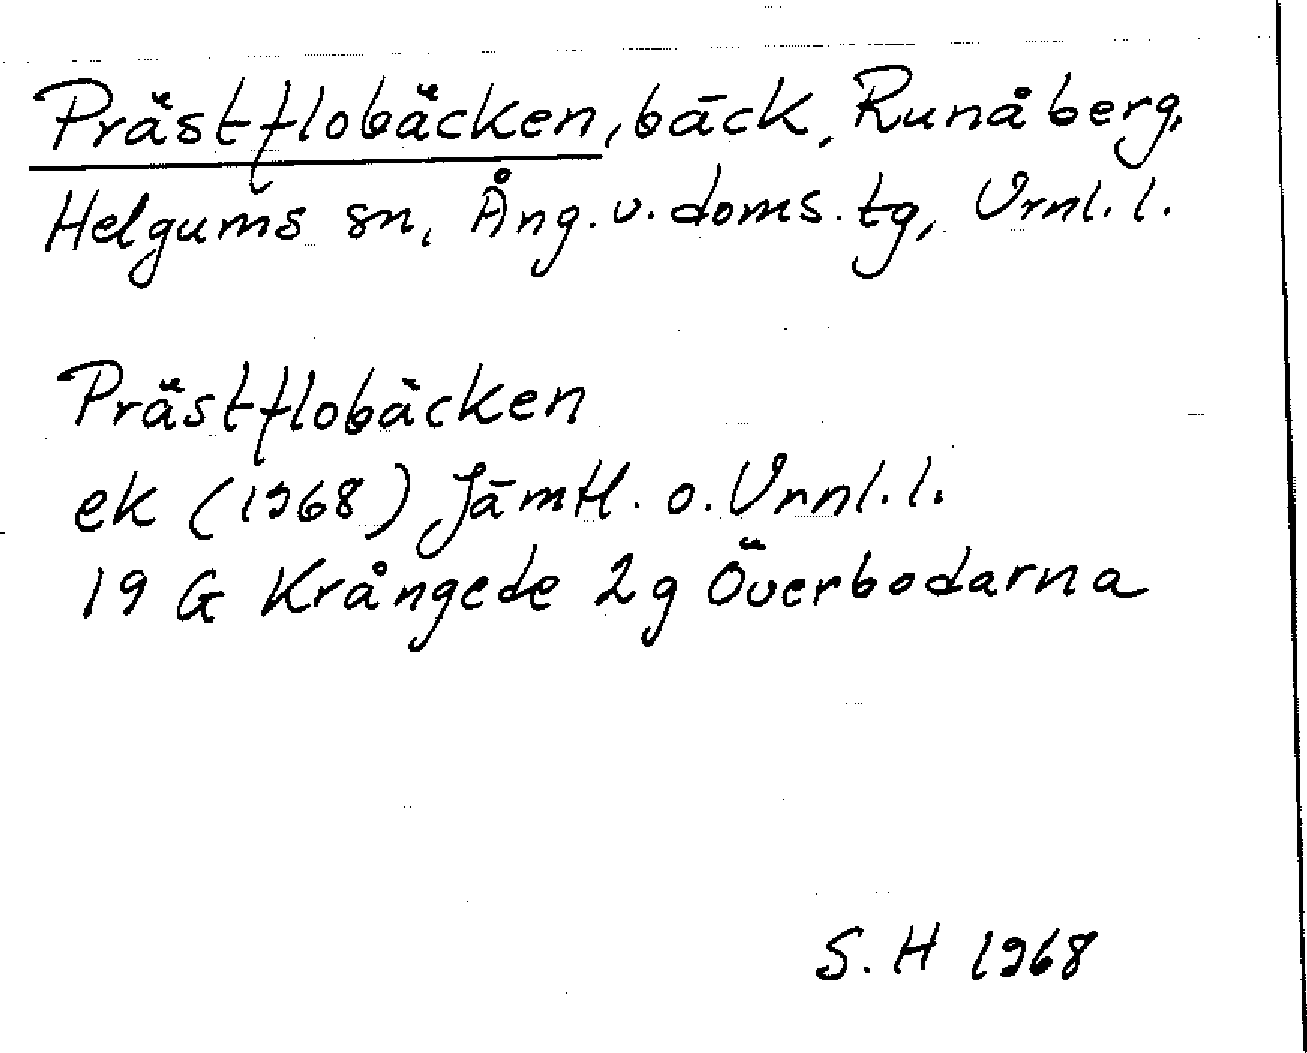 Prästflobäcken, bäck, Runåberg,
Helgums sn, Ång. v. doms. tg, Vrnl. l.
Prästflobäcken
ek (1968) Jämtl. o. Vrnl. l.
19 G Krångede 2g Överbodarna
S. H 1968